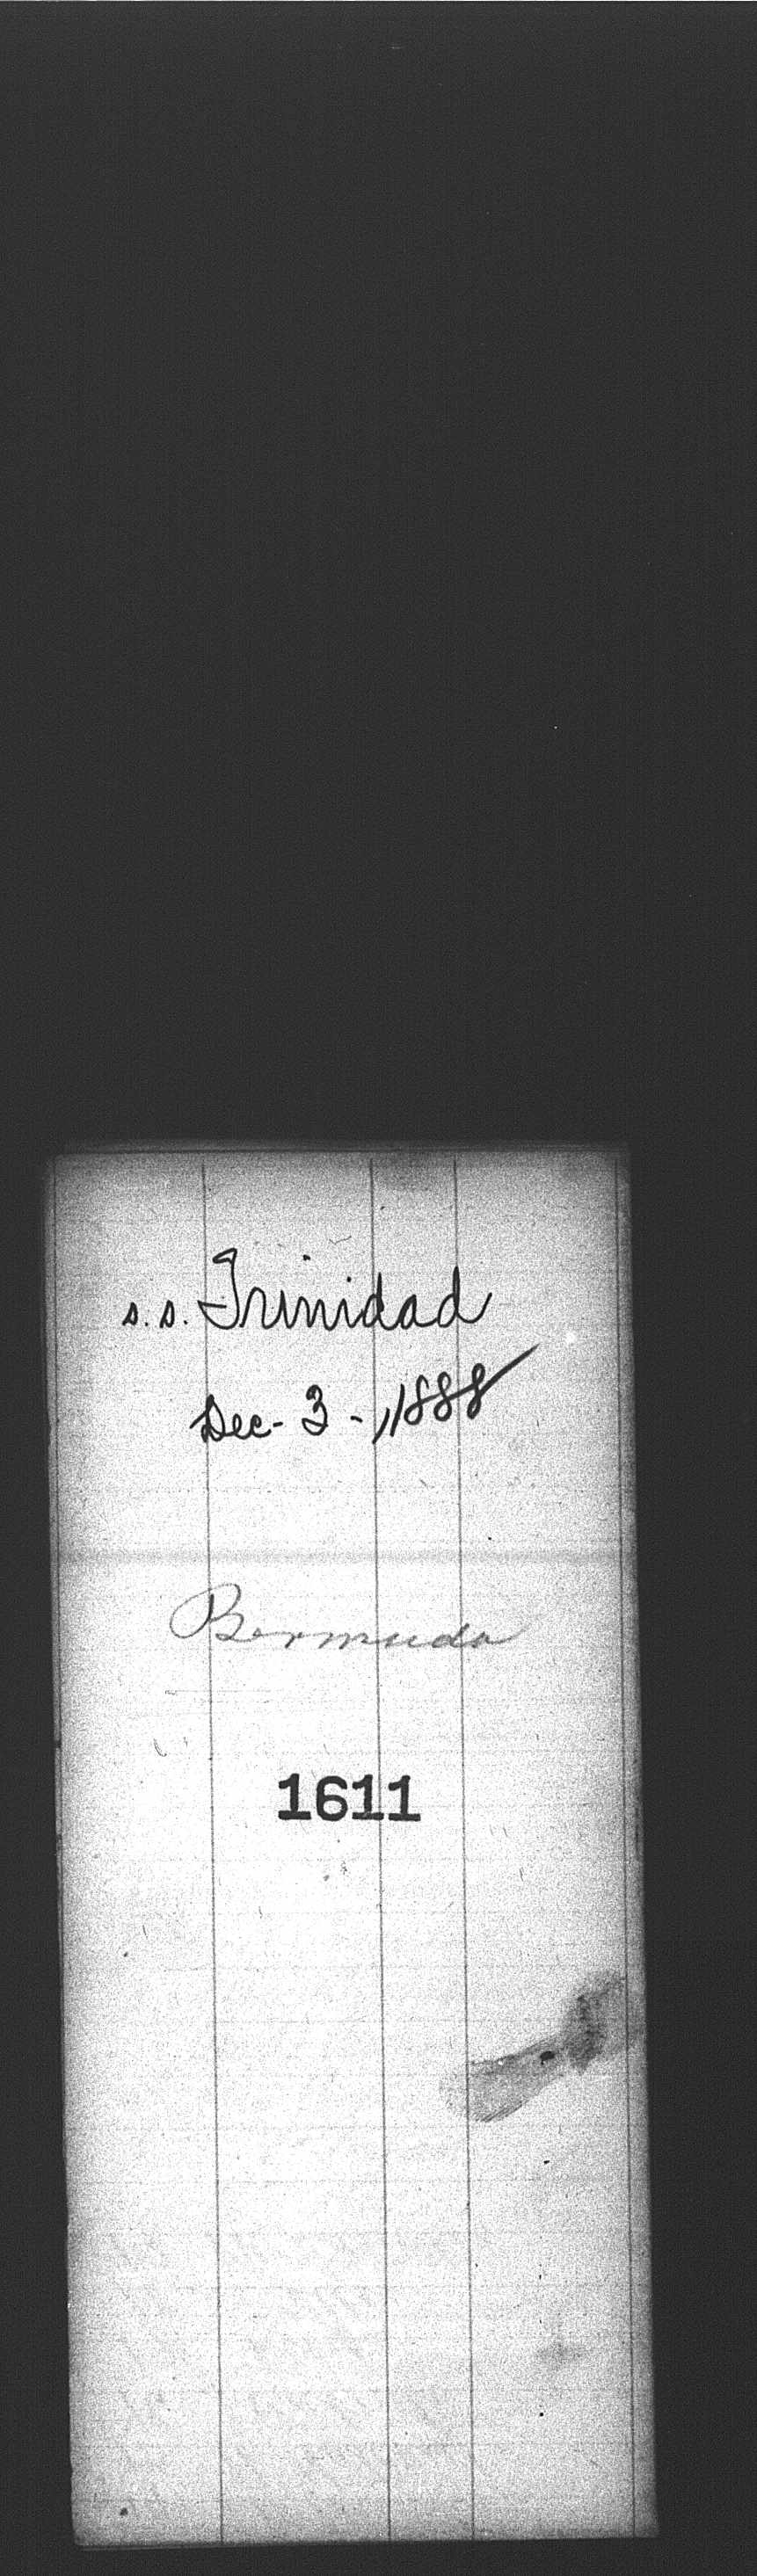 s.s. Trinidad
Dec- 3 -, 1888
Bermuda
1611